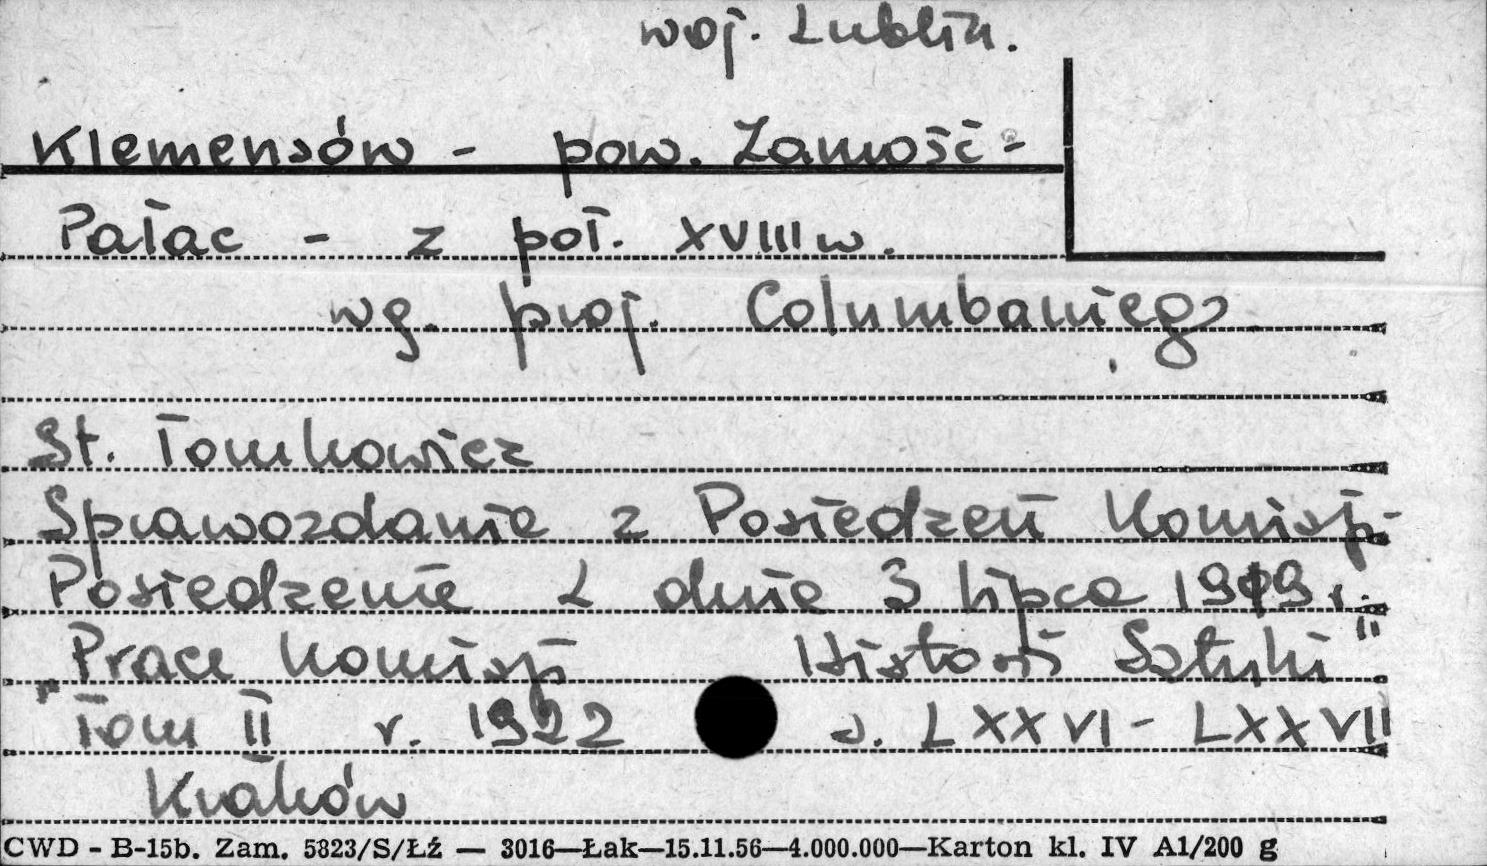 woj. Lublin.
Klemensów - pow. Zamość -
Pałac - z poł. XVIII w.
wg. proj. Columbaniego
St. Tomkowicz
Sprawozdanie z Posiedzeń Komisji -
Posiedzenie z dnia 3 lipca 1919 r.
"Prace Komisji Historii Sztuki"
Tom II r. 1922 s. LXXVI - LXXVII
Kraków
CWD - B-15b. Zam. 5823/S/Łź — 3016—Łak—15.11.56—4.000.000—Karton kl. IV A1/200 g